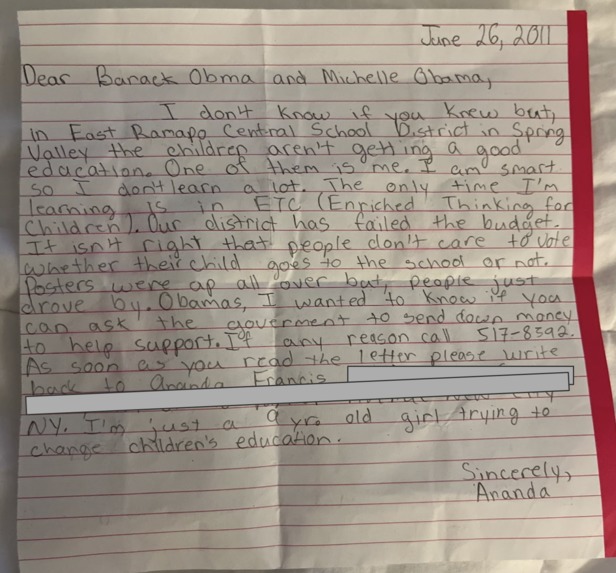 June 26, 2011
Dear Barack Obma and Michelle Obama,
I don't know if you knew but,
in East Ramapo Central School District in Spring
Valley the children aren't getting a good
education. One of them is me. I am smart
so I don't learn a lot. The only time I'm
learning is in ETC (Enriched Thinking for
Children). Our district has failed the budget.
It isn't right that people don't care to vote
whether their child goes to the school or not.
Posters were up all over but, people just
drove by. Obamas, I wanted to know if you
can ask the goverment to send down money
to help support. If any reason call 517-8592.
As soon as you read the letter please write
back to Ananda Francis
NY. I'm just a 9 yr. old girl trying to
change children's education.
Sincerely,
Ananda